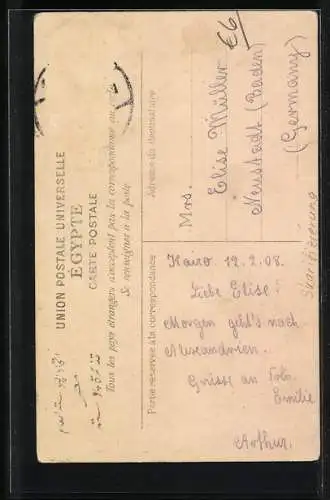 UNION POSTALE UNIVERSELLE
ÉGYPTE
CARTE POSTALE
Tous les pays étrangers n'acceptent pas la correspondance au
Se renseigner à la poste
Partie réservée à la correspondance
Adresse du destinataire
Kairo 12.2.08.
Liebe Elise!
Morgen geht's nach
Alexandrien.
Grüsse an Frln.
Emilie
Arthur.
Mrs.
Elise Müller
Neustadt (Baden)
(Germany)
€6